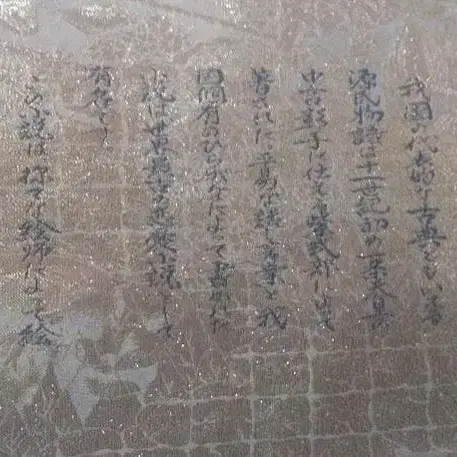 我国の代表的な古典ともいえる
源氏物語は十一世紀初め一条天皇
中宮彰子に仕えた紫式部によって
著されたに
固有のひらがなによって書かれた
小説は世界最古の長篇小説として
有名です
この小説は後では絵師によって絵